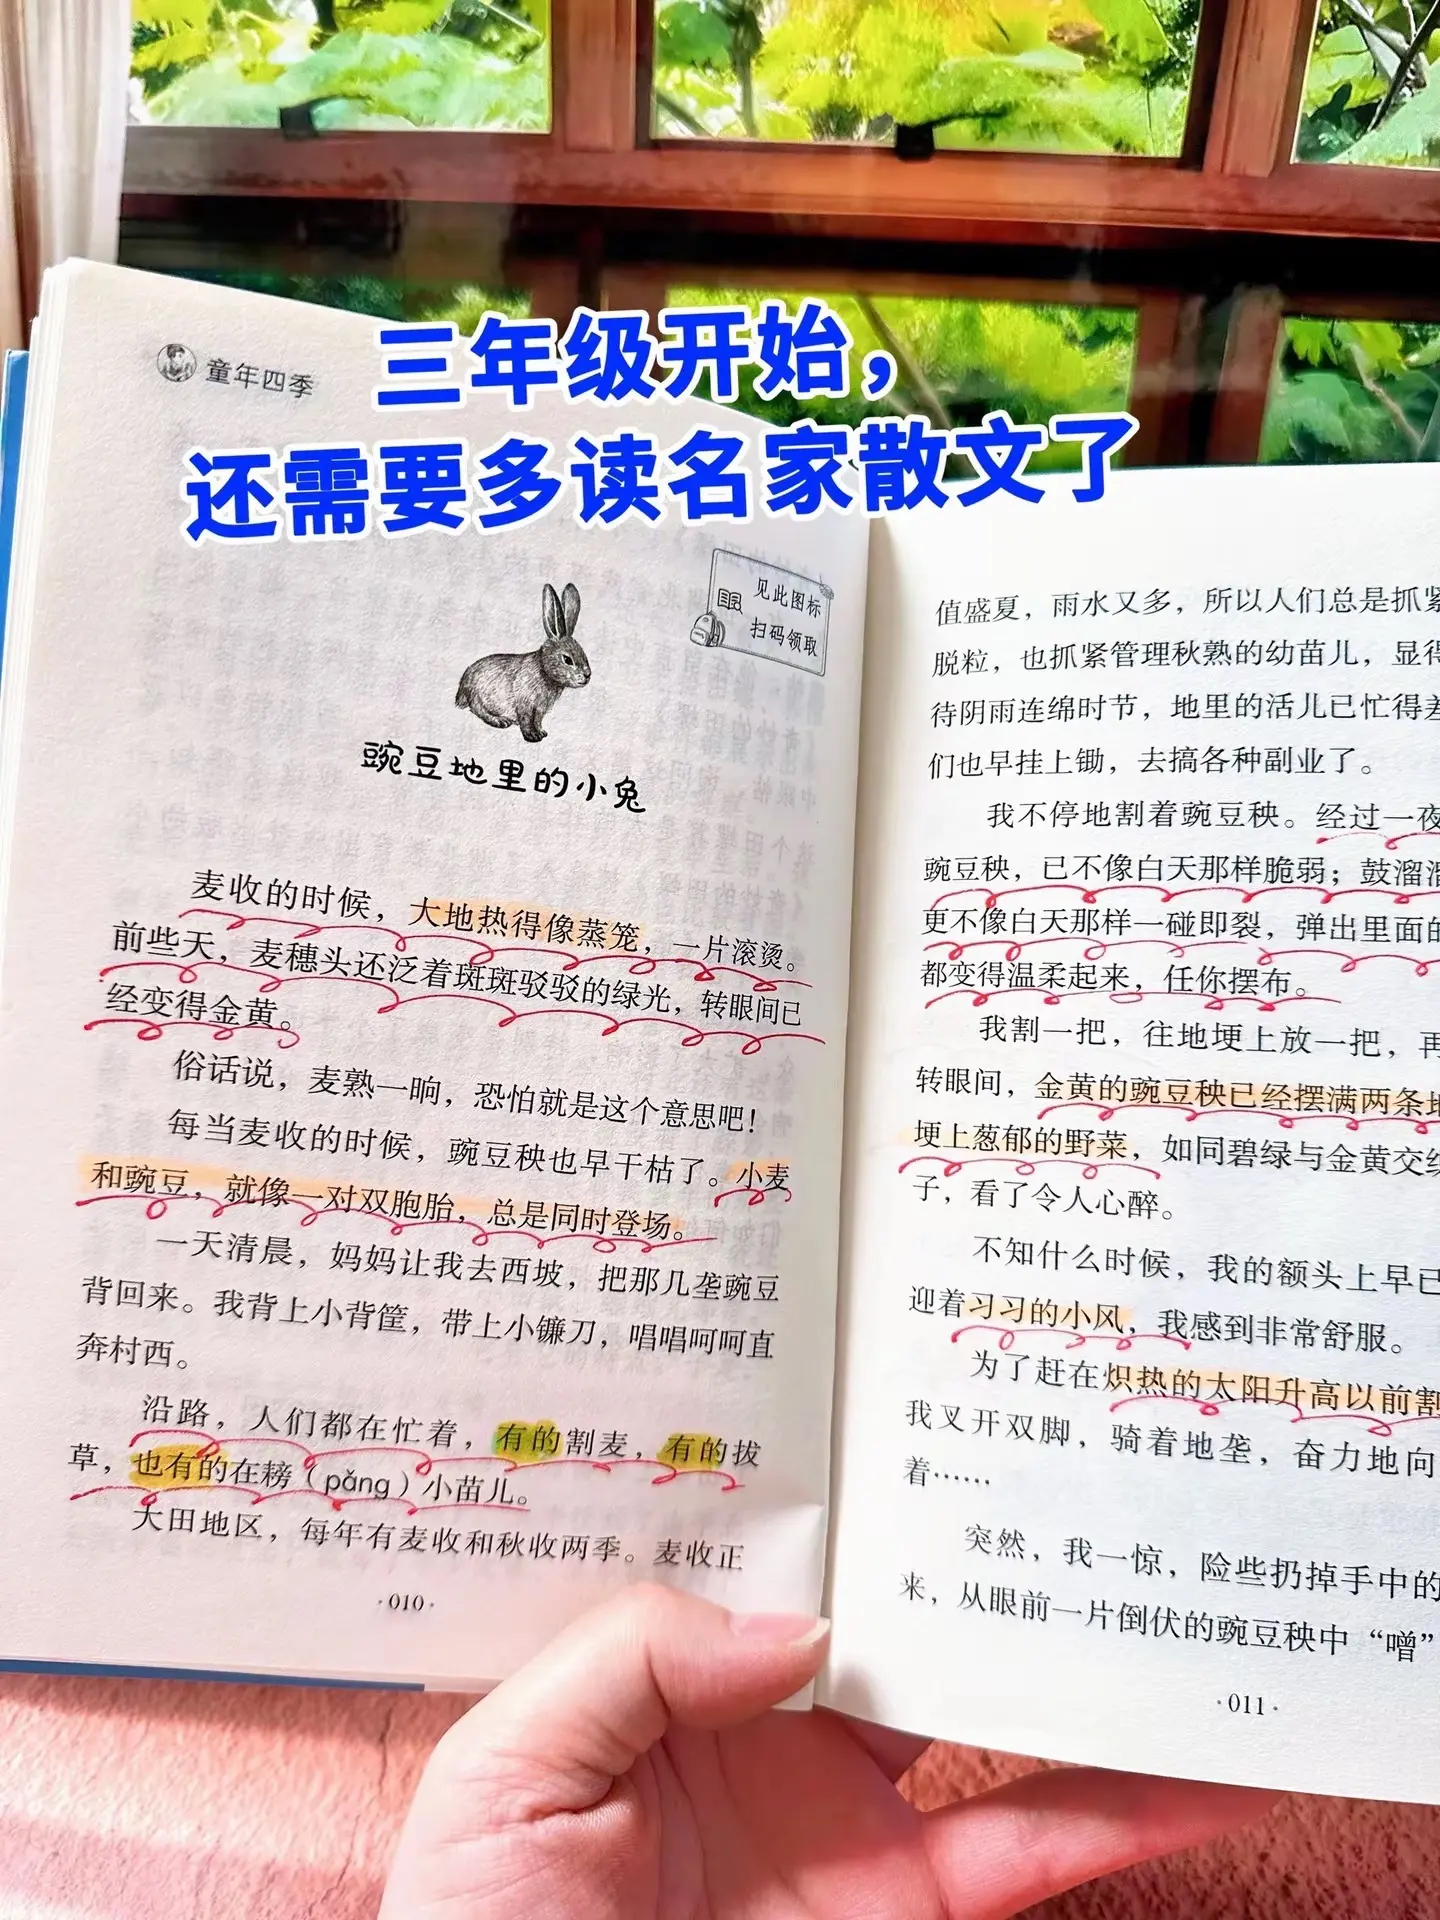 三年级开始，
还需要多读名家散文了
童年四季
见此图标
扫码领取
豌豆地里的小兔
麦收的时候，大地热得像蒸笼，一片滚烫。
前些天，麦穗头还泛着斑斑驳驳的绿光，转眼间已
经变得金黄。
俗话说，麦熟一晌，恐怕就是这个意思吧！
每当麦收的时候，豌豆秧也早干枯了。小麦
和豌豆，就像一对双胞胎，总是同时登场。
一天清晨，妈妈让我去西坡，把那几垄豌豆
背回来。我背上小背筐，带上小镰刀，唱唱呵呵直
奔村西。
沿路，人们都在忙着，有的割麦，有的拔
草，也有的在耪（pǎng）小苗儿。
大田地区，每年有麦收和秋收两季。麦收正
·010·
值盛夏，雨水又多，所以人们总是抓紧
脱粒，也抓紧管理秋熟的幼苗儿，显得
待阴雨连绵时节，地里的活儿已忙得差
们也早挂上锄，去搞各种副业了。
我不停地割着豌豆秧。经过一夜
豌豆秧，已不像白天那样脆弱；鼓溜溜
更不像白天那样一碰即裂，弹出里面的
都变得温柔起来，任你摆布。
我割一把，往地埂上放一把，再
转眼间，金黄的豌豆秧已经摆满两条地
埂上葱郁的野菜，如同碧绿与金黄交织
子，看了令人心醉。
不知什么时候，我的额头上早已
迎着习习的小风，我感到非常舒服。
为了赶在炽热的太阳升高以前割
我叉开双脚，骑着地垄，奋力地向
着……
突然，我一惊，险些扔掉手中的
来，从眼前一片倒伏的豌豆秧中“噌”
·011·